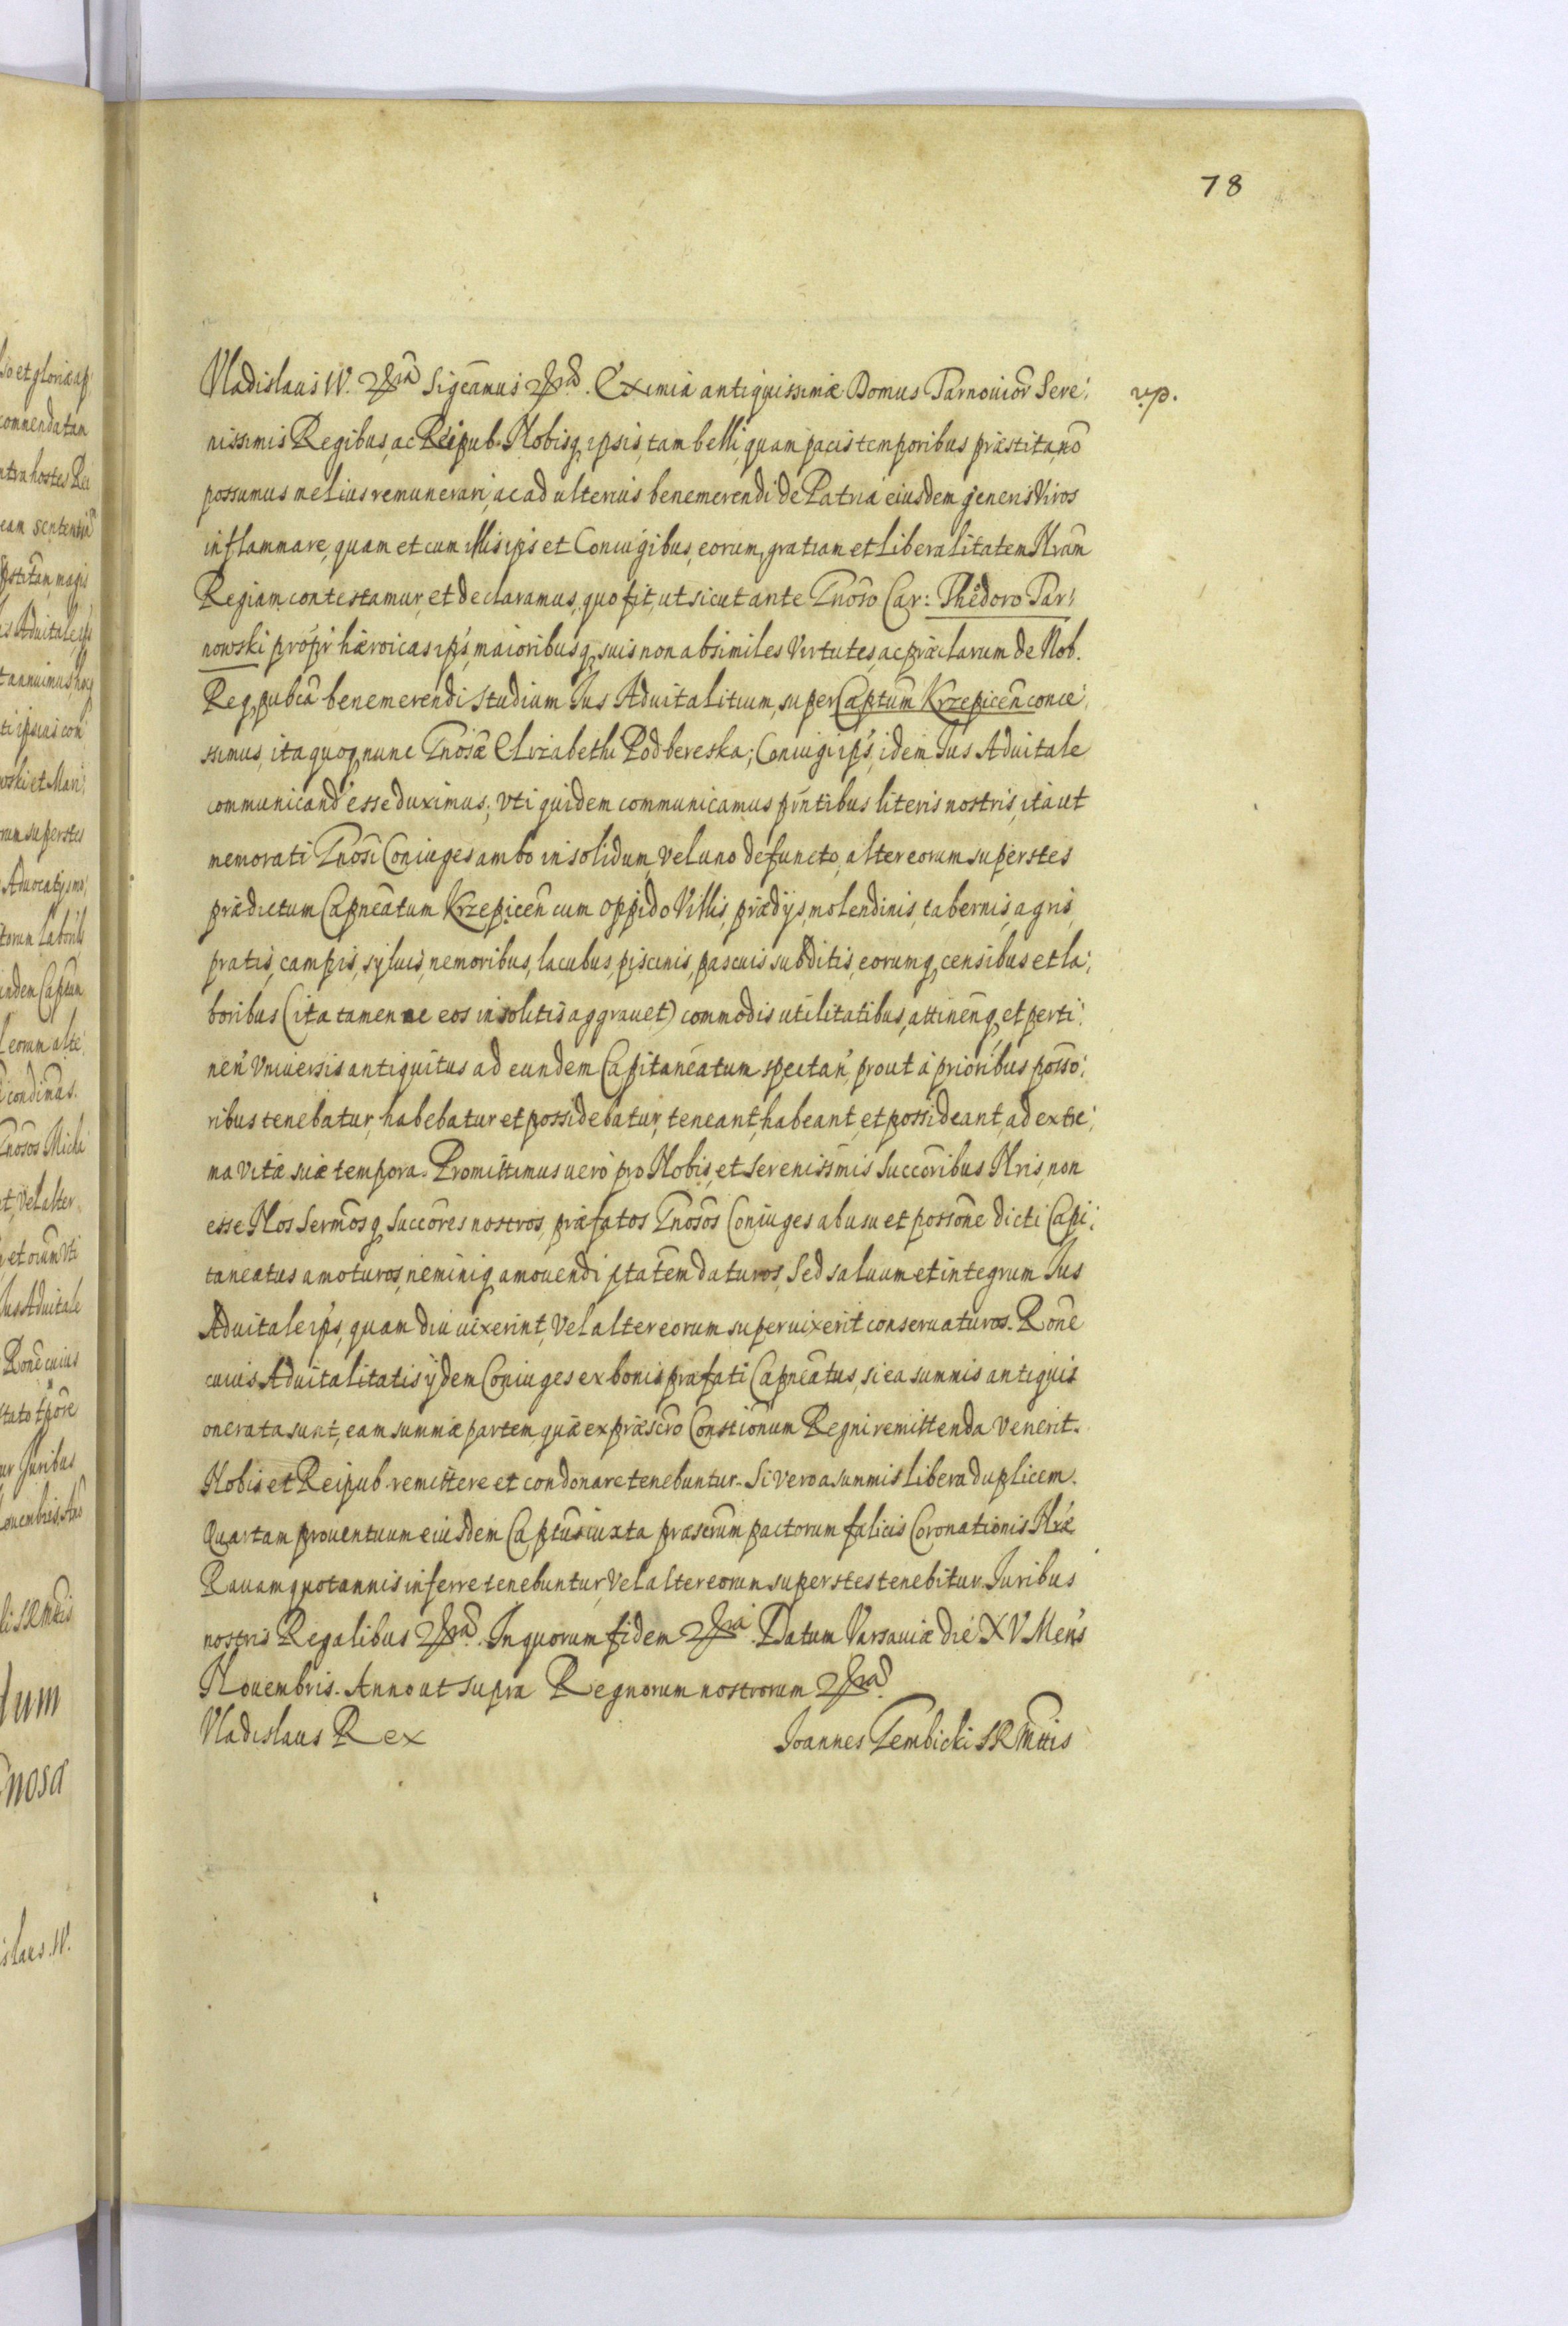 78
Vladislaus IV. &ra Sigcamus &ra. Eximia antiquissimæ Domus Tarnouior Sere:
nissimis Regibus, ac Reipub. Nobisq ipsis, tam belli, quam pacis temporibus præstita, no
possumus melius remunerari, ac ad ulterius benemerendi de Patria eiusdem generis Viros
inflammare, quam et cum illis ipis et Coniugibus, eorum, gratiam et Liberalitatem Nram
Regiam contestamur, et declaramus, quo fit, ut sicut ante Gnoso Car: Thedoro Tar:
nowski proptr hæroicas ips, maioribusq, suis non absimiles Virtutes, ac præclarum de Nob.
Req, pubca benemerendi studium Jus Aduitalitium, super Captum Krzepicen conce:
ssimus, ita quoq nunc Gnosæ Elizabethi Podbereska; Coniugi ips, idem Jus Aduitale
communicand esse duximus; Vti quidem communicamus pntibus literis nostris, ita ut
memorati Gnosi Coniuges ambo in solidum, vel uno defuncto, alter eorum superstes
prædictum Capneatum Krzepicen cum oppido Villis, prædijs, molendinis, tabernis, agris,
pratis, campis, syluis, nemoribus, lacubus, piscinis, pascuis subditis, eorumq, censibus et la:
boribus (ita tamen ne eos insolitis aggrauet) commodis utilitatibus, attinenq, et perti:
nen Vniuersis antiquitus ad eundem Capitaneatum spectan, prout à prioribus posso:
ribus tenebatur, habebatur et possidebatur, teneant, habeant, et possideant, ad extre:
ma vitæ suæ tempora. Promittimus uerò pro Nobis, et Serenissmis Succoribus Nris, non
esse Nos Sermosq, Succores nostros, præfatos Gnosos Coniuges ab usu et possone dicti Capi:
taneatus amoturos, neminiq, amouendi ptatem daturos, Sed saluum et integrum Jus
Aduitale ips, quam diu uixerint, Vel alter eorum superuixerit conseruaturos. Rone
cuius Aduitalitatis ijdem Coniuges ex bonis præfati Capneatus, si ea summis antiquis
onerata sunt, eam summæ partem, quæ ex præscro Constionum Regni remittenda venerit.
Nobis et Reipub. remittere et condonare tenebuntur. Si vero a summis libera duplicem.
Quartam prouentuum eiusdem Captus iuxta præscrum pactorum fælicis Coronationis Nræ
Rauam quotannis inferre tenebuntur, Vel alter eorum superstes tenebitur. Juribus
nostris Regalibus &ra. In quorum fidem &ra. Datum Varsauiæ die XV Mens
Nouembris. Anno ut supra Regnorum nostrorum &ra
Vladislaus Rex Joannes Gembicki SRMttis